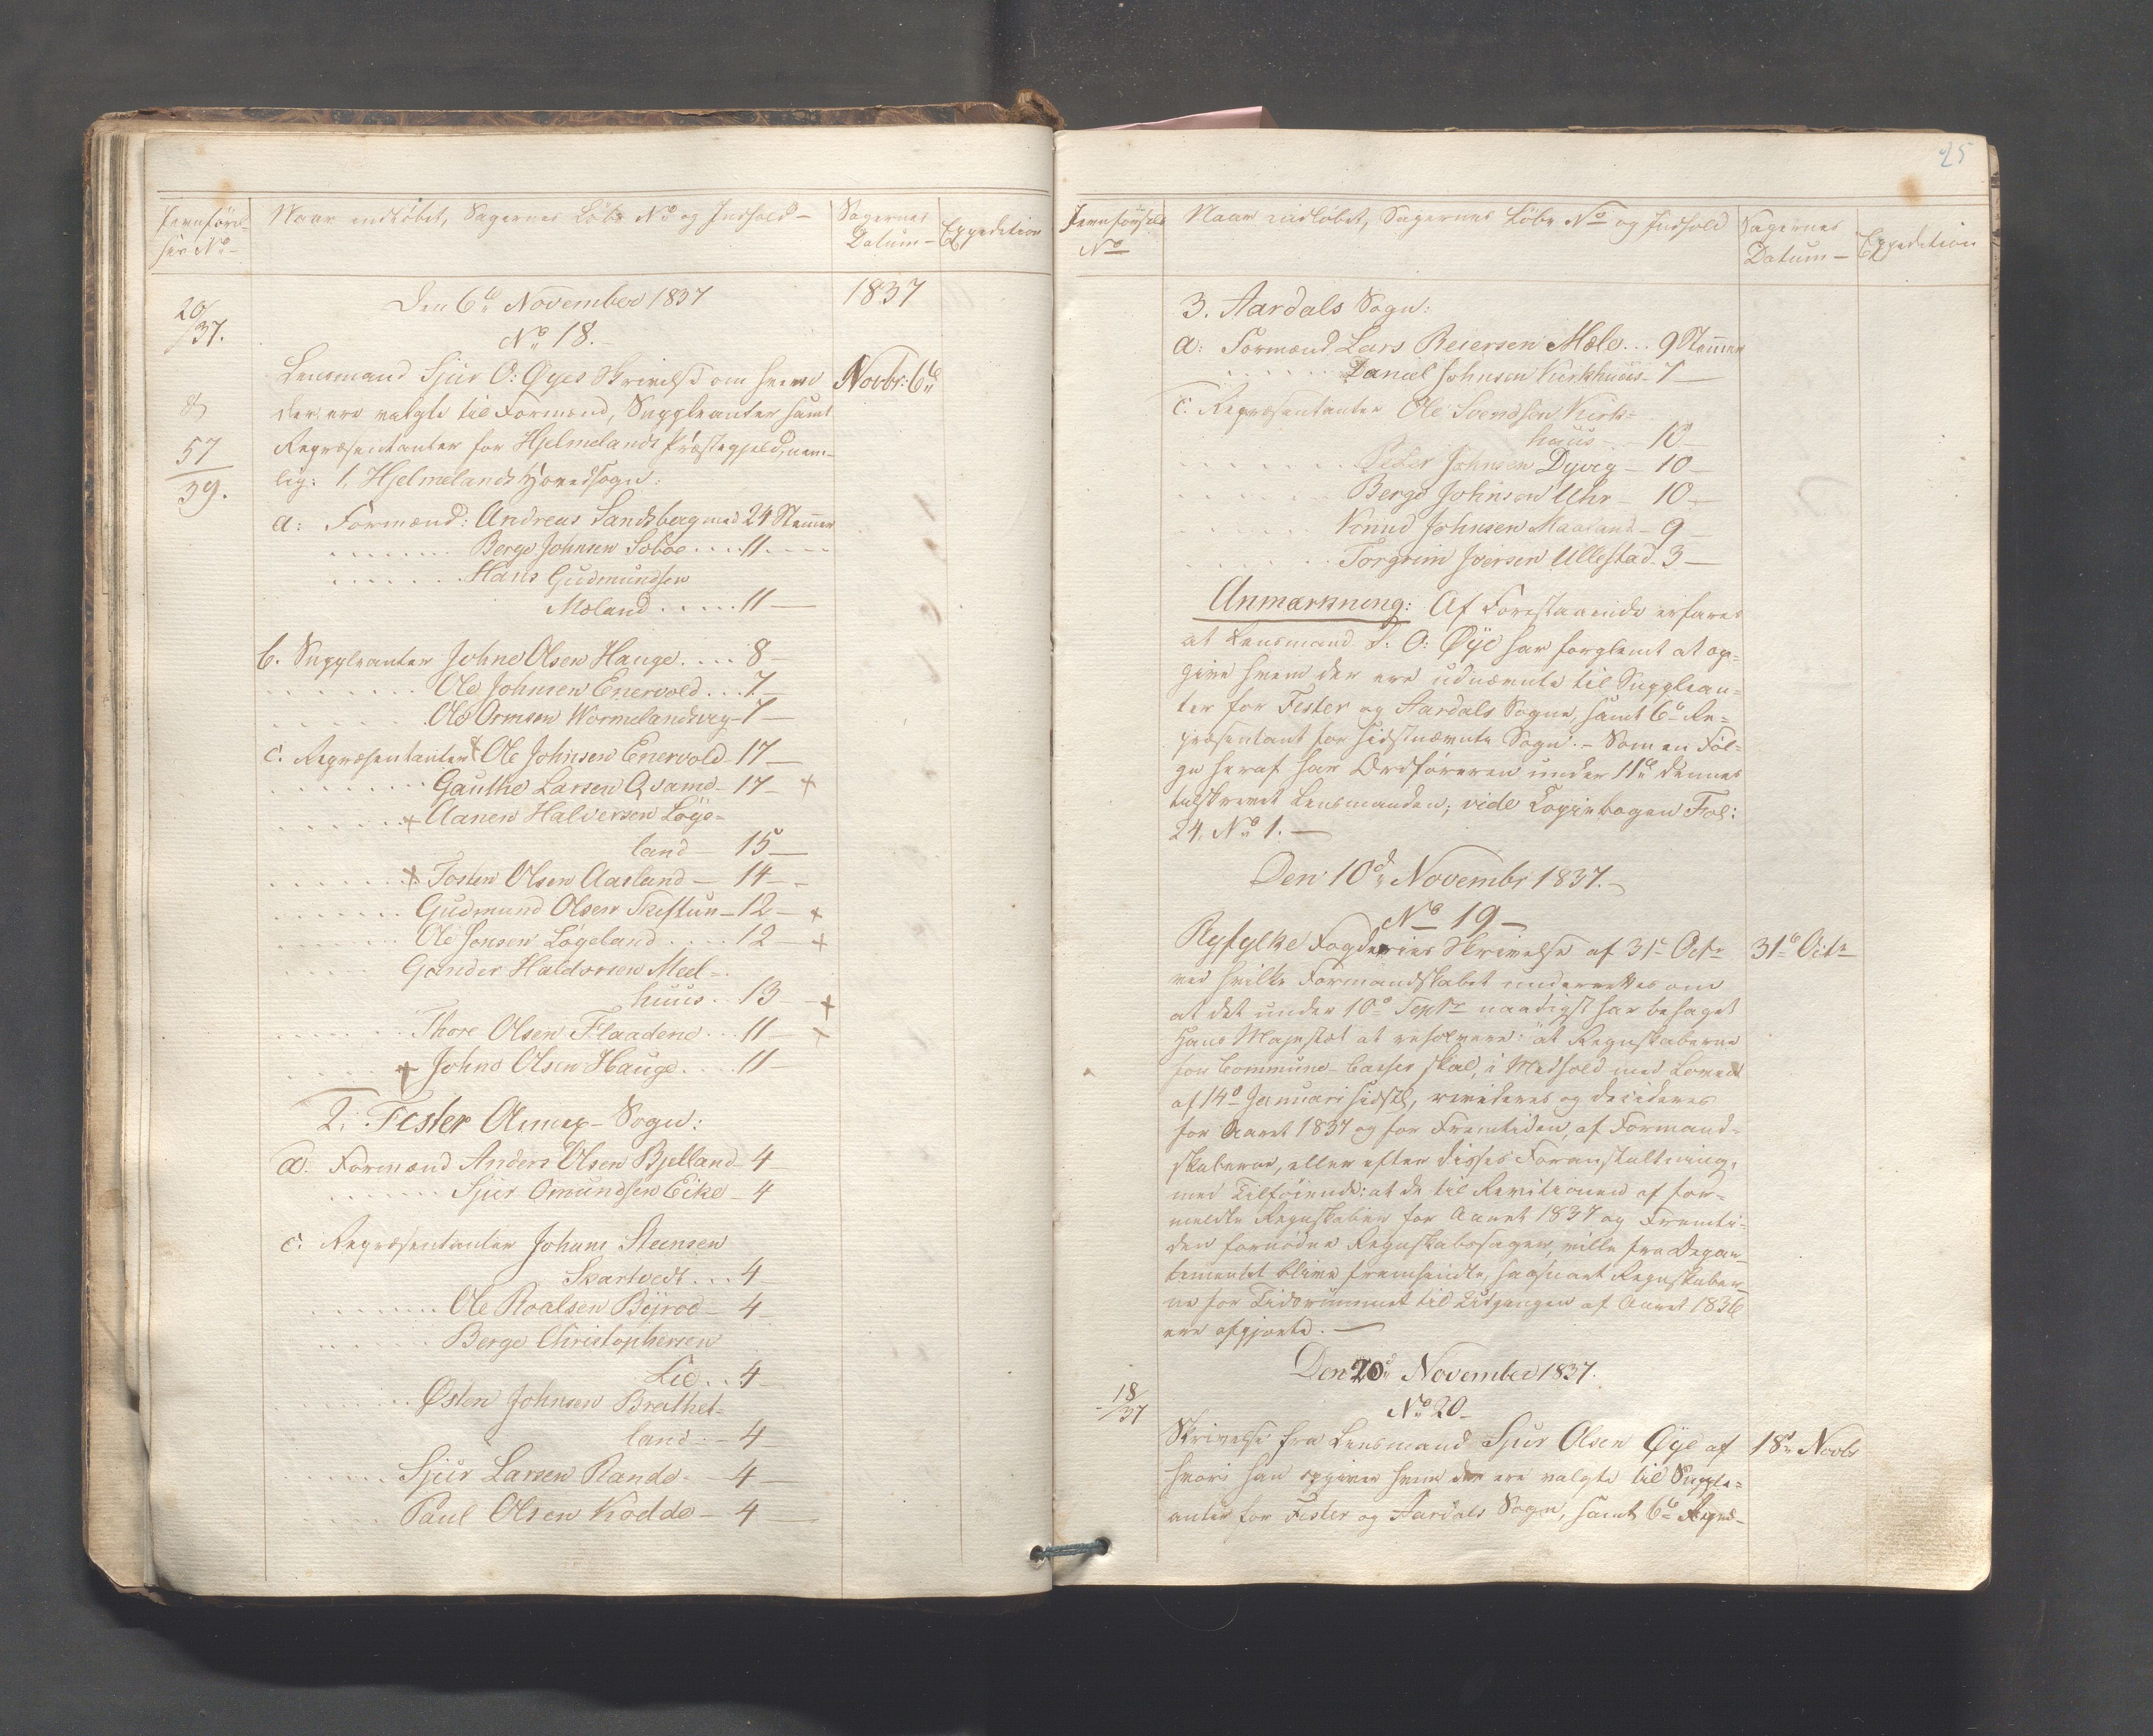 Jevnförel-
ses No
Naar indløbet, Sagernes Löbe No og Indhold
Sagernes
Datum
Expedition
20/37.
&
57/39.
Den 6te November 1837
1837
No 18.
Lensmand Sjur O: Øyes Skrivelse om hvem
Novbr: 6te
der ere valgte til Formænd, Suppleanter samt
Repræsentanter for Hjelmelands Præstegjeld, nem-
lig: 1. Hjelmelands Hovedsogn:
a: Formænd: Andreas Sandsberg med 24 Stemmer
Berge Johnsen Soboe .... 11
Hans Gudmundsen
Moland ..... 11 —
b. Suppleanter Johne Olsen Hauge .... 8 —
Ole Johnsen Enervold ... 7. —
Ole Ormsen Wormelandsvig - 7 —
c. Repræsentanter + Ole Johnsen Enervold - 17 —
Gauthe Larsen Qvame - 17 - +
+ Aanen Halversen Løge-
land — 15 —
+ Tosten Olsen Aasland — 14 —
Gudmund Olsen Skiftun — 12 — +
Ole Jonsen Løgeland .... 12 — +
Gunder Haldorsen Mæl-
huus .. 13 — +
Thore Olsen Flaadene ... 11 — +
+ Johne Olsen Hauge .... 11 —
2. Fister Annex-Sogn:
a. Formænd Anders Olsen Bjelland 4 —
Sjur Omundsen Eike - 4
c. Repræsentanter Johans Steensen
Skartvedt ... 4 —
Ole Roalsen Byrod — 4 —
Berge Christophersen
Lie ... 4 —
Østen Johnsen Brathet-
land - - 4 —
Sjur Larsen Rande - - 4 —
Paul Olsen Kodde — 4 —
25
Jevnførselses
No
Naar indløbet, Sagernes Löbe No og Indhold
Sagernes
Datum —
Expedition
3. Aardals Sogn:
a: Formænd Lars Reiersen Mæle ... 9 Stemmer
Daniel Johnsen Kirkhuus - 7 —
c. Repræsentanter Ole Svendsen Kirk-
huus - .. 10 —
Peder Johnsen Dyvig — 10 —
Berge Johnsen Uhr — 10 —
Knud Johnsen Maaland — 9 —
Torgrim Iversen Ullestad. 3 —
Anmærkning: Af Forestaaende erfares
at Lensmand S. O: Øye har forglemt at op-
give hvem der ere udnævnte til Supplean-
ter for Fister og Aardals Sogne, samt 6te Re-
præsentant for sidstnævnte Sogn. — Som en Föl-
ge heraf har Ordföreren under 11te dennes
tilskrevet Lensmanden; vide Copiebogen Fol:
24. No 1. —
Den 10de Novembr 1837. —
No 19 —
Ryfylke Fogderies Skrivelse af 31te Octr
31te Octr
ved hvilke Formandskabet underrettes om
at det under 10de Septr naadigst har behaget
Hans Majestæt at resolvere: at Regnskaberne
for Commune-Casser skal, i Medhold med Loven
af 14de Januari sidstl, revideres og decideres
for Aaret 1837 og for Fremtiden, af Formand-
skaberne, eller efter disses Foranstaltning,
med Tilføiende: at de til Revisionen af for-
meldte Regnskaber for Aaret 1837 og Fremti-
den fornødne Regnskabssager, ville fra Depar-
tementet blive fremsendte, saasnart Regnskaber-
ne for Tidsrummet til Udgangen af Aaret 1836
ere afgjorte. —
Den 20de November 1837.
18/37
No 20 —
Skrivelse fra Lensmand Sjur Olsen Øye af
18de Novbr
hvori han opgiver hvem der ere valgte til Supple-
anter for Fister og Aardals Sogn, samt 6te Repræ-